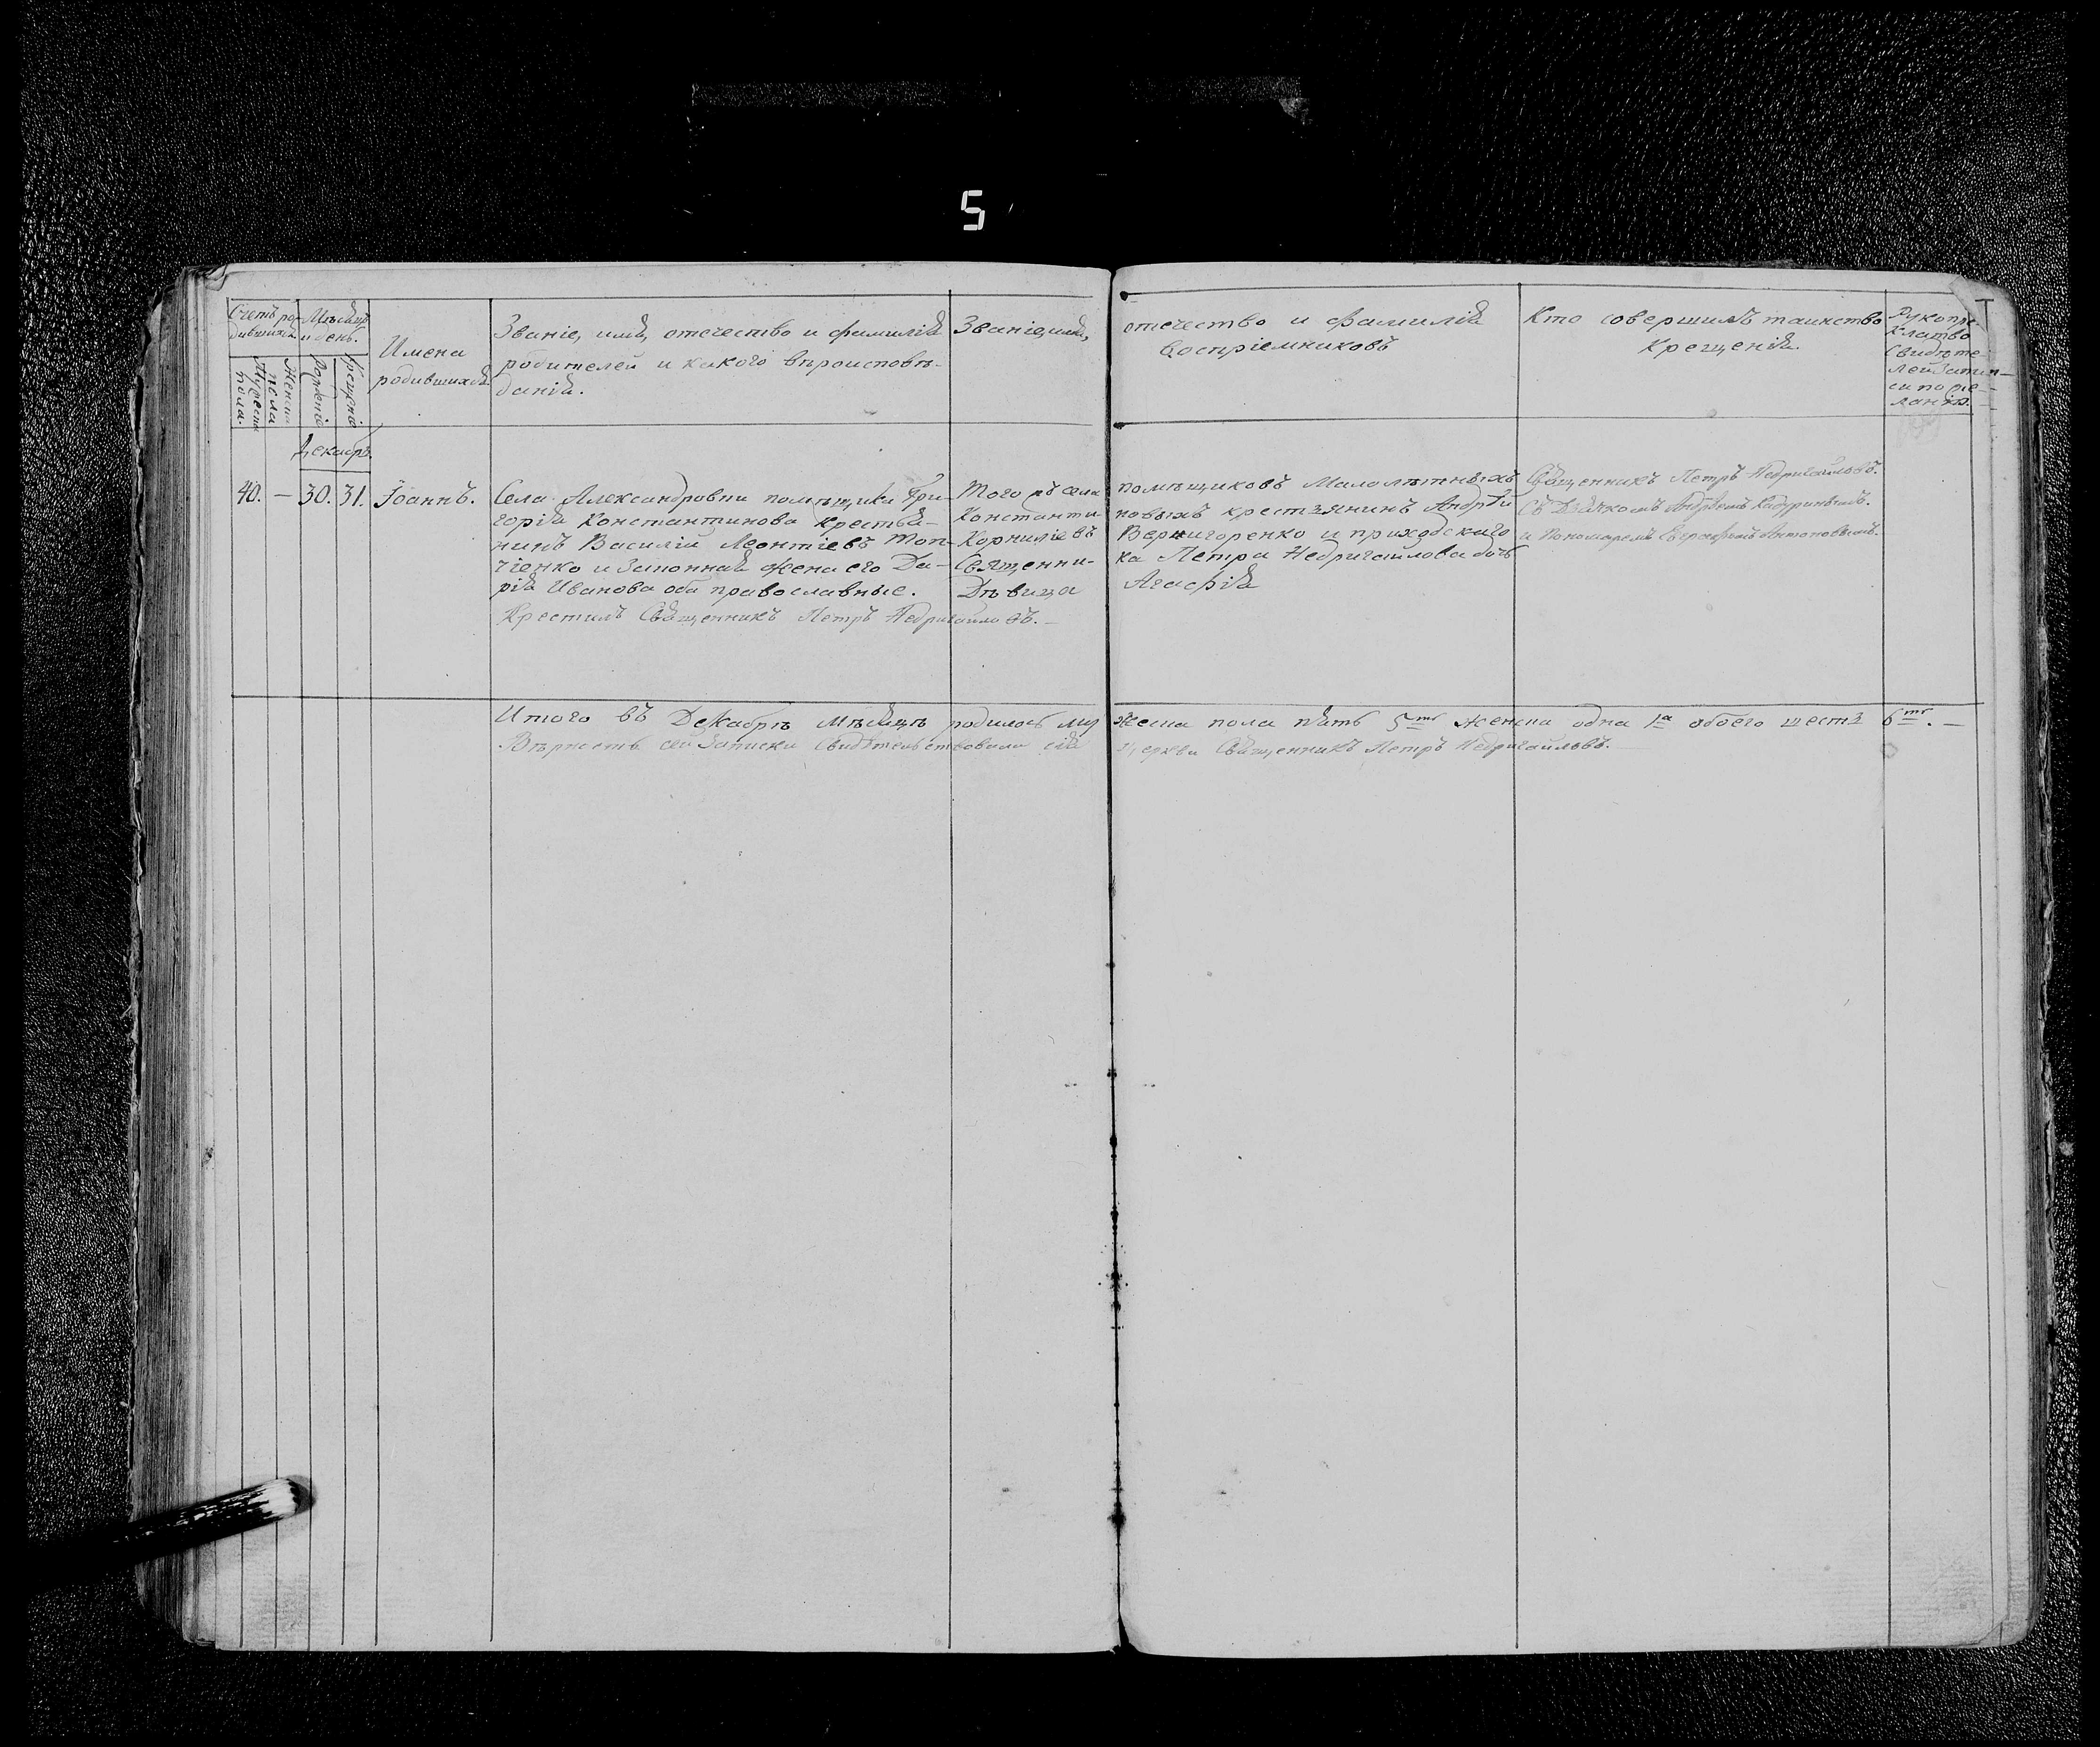 5
Счетъ ро-
дившихся
Мѣсяцъ
и день.
Мужеска
пола.
Женска
пола
Рожденіе
Крещеніе
Имена
родившихся
Званіе, имя, отечество и фамилія
родителей и какого вѣроисповѣ-
данія.
Званіе, имя,
отечество и фамилія
воспріемниковъ
Кто совершилъ таинство
крещенія.
Рукопри-
кладство
свидѣте-
лей записи
по же-
ланію.
Декабрь
40. — 30. 31. Іоаннъ.
Села Александровки помѣщика Гри-
горія Константинова крестья-
нинъ Василій Леонтіевъ Топ-
чіенко и законная жена его Да-
рія Иванова оба православные.
Крестилъ Священникъ Петръ Недригайловъ. —
Того жъ села помѣщиковъ Малолѣтныхъ
Константиновыхъ крестьянинъ Андрѣй
Корниліевъ Вернигоренко и приходскаго
Священника Петра Недригайлова дочь
Дѣвица Агафія
Священникъ Петръ Недригайловъ.
Съ Дьячкомъ Андреемъ
и Пономаремъ Антоновымъ.
Итого въ Декабрѣ мѣсяцѣ родилось мужеска пола пять 5ть женска одна 1а обоего шесть 6ть. —
Вѣрность сей записки свидѣтельствовали сея церкви Священникъ Петръ Недригайловъ.